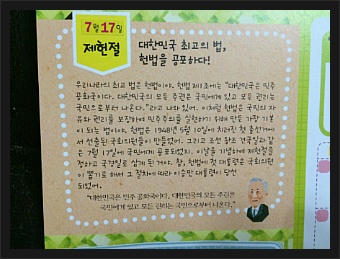 7월 17일
제헌절
대한민국 최고의 법,
헌법을 공포하다!
우리나라의 최고 법은 헌법이야. 헌법 제1조에는 "대한민국은 민주
공화국이다. 대한민국의 모든 주권은 국민에게 있고 모든 권리는
국민으로부터 나온다."라고 나와 있어. 이처럼 헌법은 국민의 자
유와 권리를 보장하며 민주주의를 실현하기 위해 만든 가장 기본
이 되는 법이야. 헌법은 1948년 5월 10일에 치러진 첫 총선거에
서 선출된 국회의원들이 만들었어. 그리고 조선 창조 건국일과 같
은 7월 17일에 국민에게 공포되었지. 이날을 기념하여 제헌절을
정하고 국경일로 삼게 된 거야. 참, 헌법에 첫 대통령은 국회의원
이 뽑기로 해서 그 절차에 따라 이승만 대통령이 당선
되었어.
"대한민국은 민주 공화국이다. 대한민국의 모든 주권은
국민에게 있고 모든 권리는 국민으로부터 나온다."